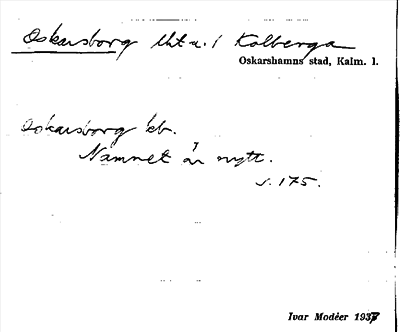 Oskarsborg lht a. i Kolberga
Oskarshamns stad, Kalm. l.
Oskarsborg kb.
Namnet är nytt.
s. 175.
Ivar Modéer 1937